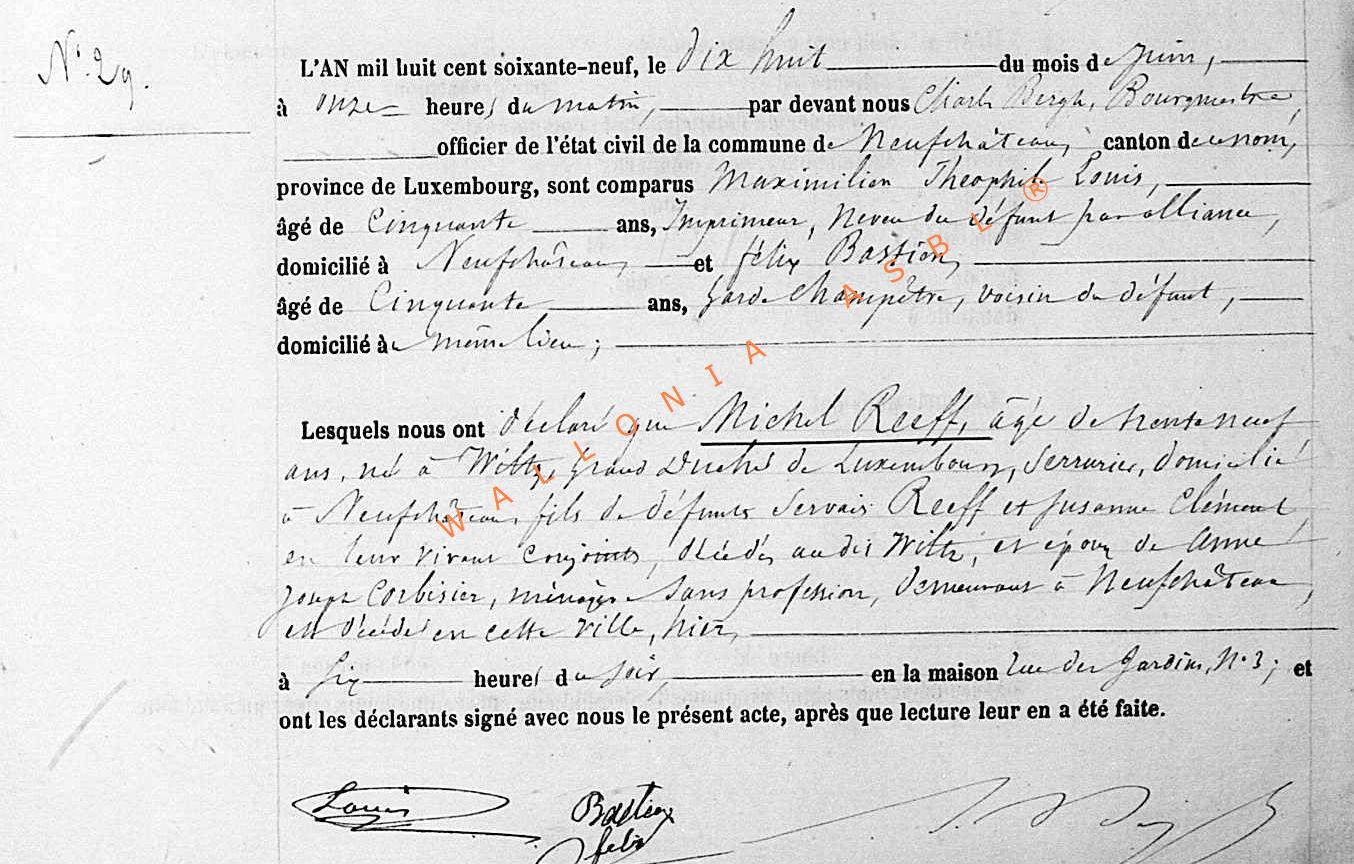 N° 29.
L'AN mil huit cent soixante-neuf, le Dix huit du mois de Juin,
à onze heures du matin, par devant nous Charles Bergh, Bourgmestre,
officier de l'état civil de la commune de Neufchâteau, canton de ce nom,
province de Luxembourg, sont comparus Maximilien Théophile Louis,
âgé de Cinquante ans, Imprimeur, Neveu du défunt par alliance,
domicilié à Neufchâteau, et félix Bastien,
âgé de Cinquante ans, garde Champêtre, voisin du défunt,
domicilié au même lieu ;
Lesquels nous ont déclaré que Michel Reeff, âgé de trente neuf
ans, né à Wiltz, grand Duché de Luxembourg, Serrurier, domicilié
à Neufchâteau, fils de défunts Servais Reeff et Susanne Clément,
en leur vivant conjoints, décédés au dit Wiltz, et époux de Anne
Joseph Corbisier, ménagère sans profession, demeurant à Neufchâteau,
est décédé en cette ville, hier,
à six heures du soir, en la maison rue des Jardins, N° 3 ; et
ont les déclarants signé avec nous le présent acte, après que lecture leur en a été faite.
Louis Bastien
félix
WALLONIA ASBL ®